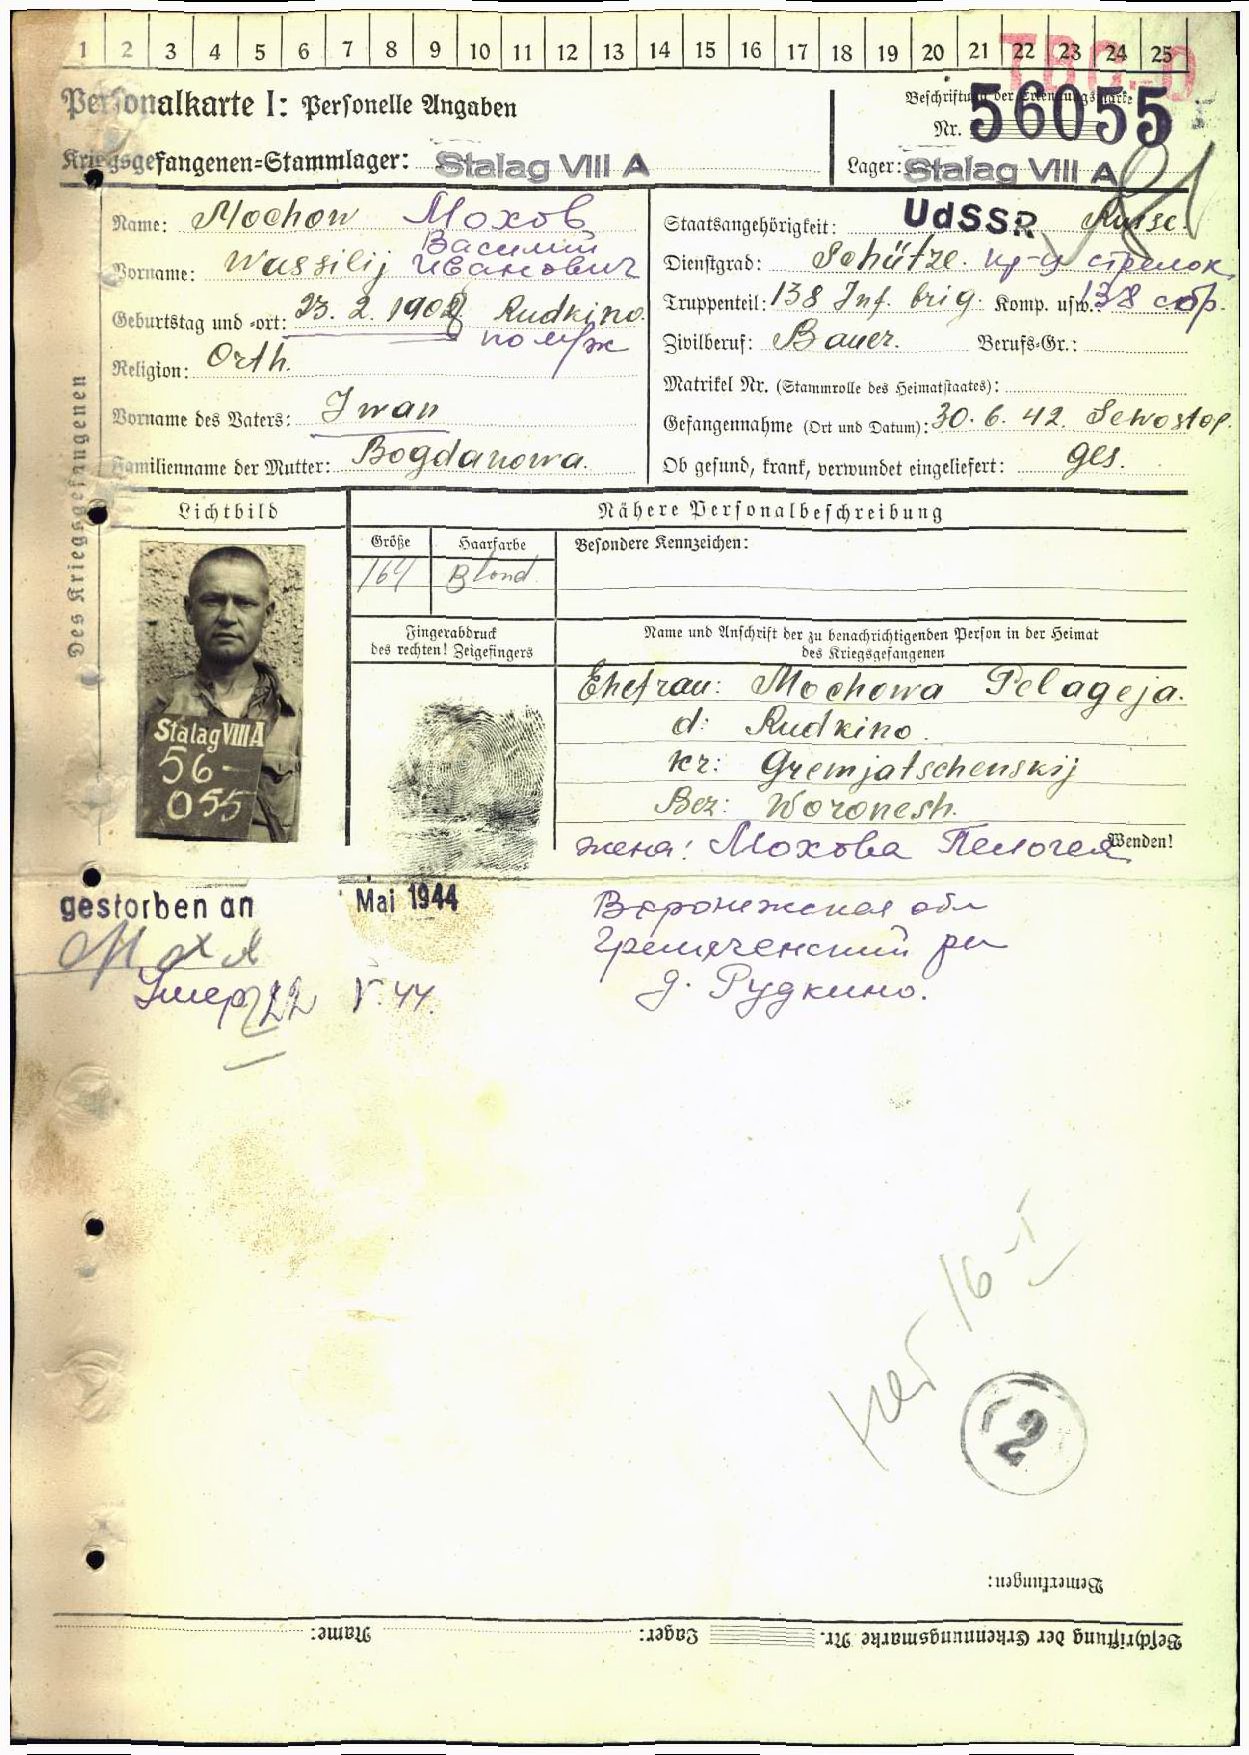 1 2 3 4 5 6 7 8 9 10 11 12 13 14 15 16 17 18 19 20 21 22 23 24 25
Personalkarte I: Personelle Angaben
Beschriftung der Erkennungsmarke
Nr. 56055
Kriegsgefangenen=Stammlager: Stalag VIII A
Lager: Stalag VIII A
Des Kriegsgefangenen
Name: Mochow Мохов
Василий
Vorname: Wassilij Иванович
Geburtstag und =ort: 23. 2. 1908 Rudkino.
Religion: Orth.
Vorname des Vaters: Iwan
Familienname der Mutter: Bogdanowa.
Staatsangehörigkeit: UdSSR Russe.
Dienstgrad: Schütze. кр-ц стрелок
Truppenteil: 138 Inf. brig. Komp. usw.: 138 сбр.
Zivilberuf: Bauer. Berufs=Gr.:
Matrikel Nr. (Stammrolle des Heimatstaates):
Gefangennahme (Ort und Datum): 30. 6. 42. Sewastop.
Ob gesund, krank, verwundet eingeliefert: ges.
Lichtbild
Nähere Personalbeschreibung
Größe Haarfarbe Besondere Kennzeichen:
164 Blond.
Fingerabdruck
des rechten! Zeigefingers
Name und Anschrift der zu benachrichtigenden Person in der Heimat
des Kriegsgefangenen
Stalag VIII A
56-
055
Ehefrau: Mochowa Pelageja.
d: Rudkino.
kr: Gremjatschenskij
Bez: Woronesh.
жена: Мохова Пелогея
Wenden!
gestorben an Mai 1944
Воронежская обл
Гремяченский рн
д. Рудкино.
Умер 22 V. 44.
нет 16-I
2
Bemerkungen:
Beschriftung der Erkennungsmarke Nr. Lager: Name: